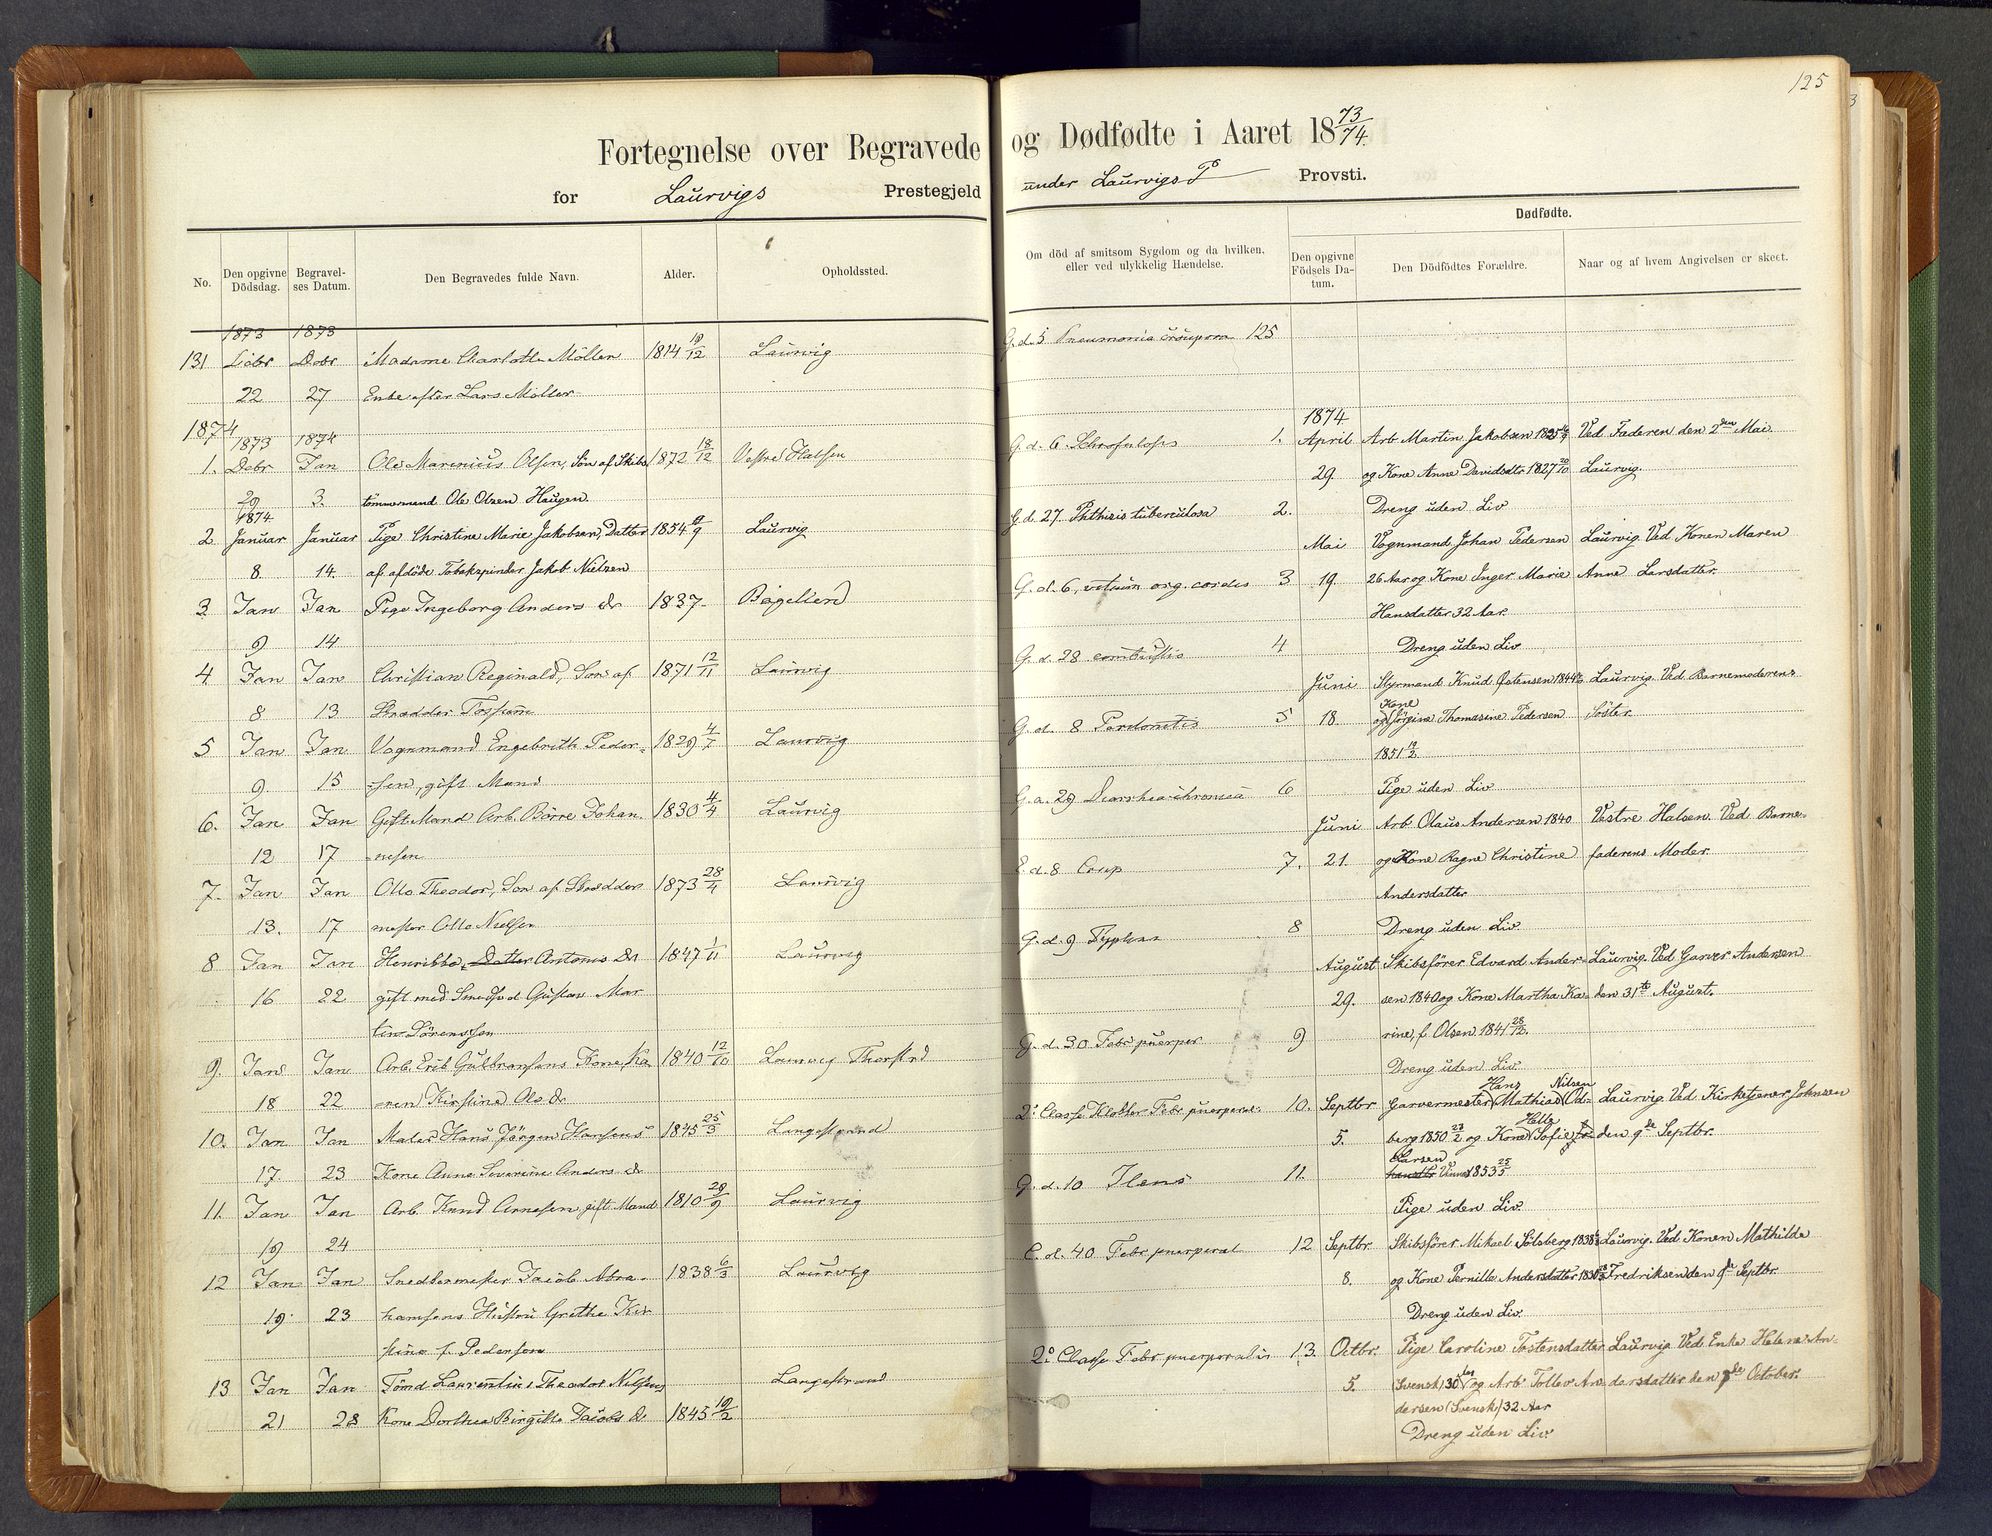 125
Fortegnelse over Begravede og Dødfødte i Aaret 18 73/74.
for Laurvigs Prestegjeld under Laurvigs P Provsti.
Dødfødte.
No.
Den opgivne Dödsdag.
Begravelses Datum.
Den Begravedes fulde Navn.
Alder.
Opholdssted.
Om död af smitsom Sygdom og da hvilken, eller ved ulykkelig Hændelse.
Den opgivne Födsels Datum.
Den Dödfödtes Forældre.
Naar og af hvem Angivelsen er skeet.
1873 1873
131 Debr Debr Madame Charlotte Möller 1814 19/12 Laurvig
22 27 Enke efter Lars Möller
1874
1873 1874
1. Debr Jan Ole Marenius Olsen, Sön af Skibs 1872 18/12 Vestre Halsen
29 3. tömmermand Ole Olsen Haugen.
1874
2 Januar Januar Pige Christine Marie Jakobsen, Datter 1854 /9 Laurvig
8. 14. af afdöde Tobakspinder Jakob Nielsen
3. Jan Jan Pige Ingeborg Anders dr 1837 Bögelien
9 14
4. Jan Jan Christian Reginald, Son af 1871 12/11 Laurvig
8 13 Skrædder Fossum
5 Jan Jan Vognmand Engebrith Peder- 1829 4/7 Laurvig
9. 15 -sen, gift Mand
6. Jan Jan Gift Mand Arb. Börre Johan- 1830 4/4 Laurvig
12 17 -nesen
7. Jan Jan Otto Theodor, Son af Skrædder 1873 28/4 Laurvig
13. 17 mester Otto Nielsen
8 Jan Jan Henrikke, Datter Antonis dr 1847 1/11 Laurvig
16 22 gift med Smedsvd Gustav Mar
tin Sörenssen
9. Jan Jan Arb. Erik Gulbransens Kone, Ka 1840 12/10 Laurvig Thorstrd
18 22 -ren Kirstine Ols dr
10. Jan Jan Maler Hans Jörgen Hansens 1845 25/3 Langestrand
17. 23 Kone Anne Severine Anders dr
11. Jan Jan Arb. Knud Arnesen, gift Mand 1810 29/9 Laurvig
19 24
12 Jan Jan Snedkermester Jacob Abra- 1838 6/3 Laurvig
19. 23 hamsens Hustru Grethe Kir
stine f. Pedersen
13 Jan Jan Tömd Laurentius Theodor Nilsens Langestrand
21 28 Kone Dorthea Birgitte Jacobs dr 1845 19/2
G. d. 5 Pneumonia crouposa 125
G. d. 6. Schrofulosis 1.
G. d. 27. Phthisis tuberculosa 2.
G. d. 6, vitium org. cordis 3
G. d. 28 combustis 4
G. d. 8 5
G. d. 29 Diarrhea chronica 6
E. d. 8 Croup 7.
G. d. 9 8
G. d. 30 Febr puerper 9
2. Classe Kloster Febr puerperal. 10.
G. d. 10 Ileus 11.
C. d. 40 Febr puerperal 12
2. Classe Febr puerperalis 13.
1874
April Arb Martin Jakobsen 1825 Ved Faderen den 2den Mai
29. og Kone Anne Davidsdtr. 1827 20/10 Laurvig.
Dreng uden Liv
Mai Vognmand Johan Pedersen Laurvig. Ved Konen Maren
19. 26 Aar og Kone Inger Marie Anne Larsdatter.
Hansdatter 32 Aar.
Dreng uden Liv
Juni Styrmand Knud Östensen 1844 Laurvig. Ved Barnemoderens
18. og Kone Jörgine Thomasine Pedersen Söster.
1851 19/2
Pige uden Liv
Juni Arb Olaus Andersen 1840 Vestre Halsen. Ved Barne-
21. og Kone Ragne Christine faderens Moder.
Andersdatter
Dreng uden Liv.
August Skibsförer Edvard Ander- Laurvig. Ved Garver Andersen
29. sen 1840 og Kone Martha Ka- den 31te August.
rine, f. Olsen 1841 28/12.
Dreng uden Liv.
Hans Nilsen
Septbr Garvermester Mathias Od- Laurvig. Ved Kirketjener Johnsen
5. berg 1850 23/2 og Kone Sofie den 9de Septbr.
Larsen 1853 25/5
Pige uden Liv.
Septbr. Skibsförer Mikael Solsberg 1838 Laurvig. Ved Konen Mathilde
8. og Kone Pernille Andersdatter Fredriksen den 9de Septbr.
Dreng uden Liv.
Octbr. Pige Caroline Tostensdatter Laurvig. Ved Enke Helene An-
5. (Svensk) 30 og Arb Tollev An- dersdatter den 7de October.
dersen (Svensk) 32 Aar
Dreng uden Liv.